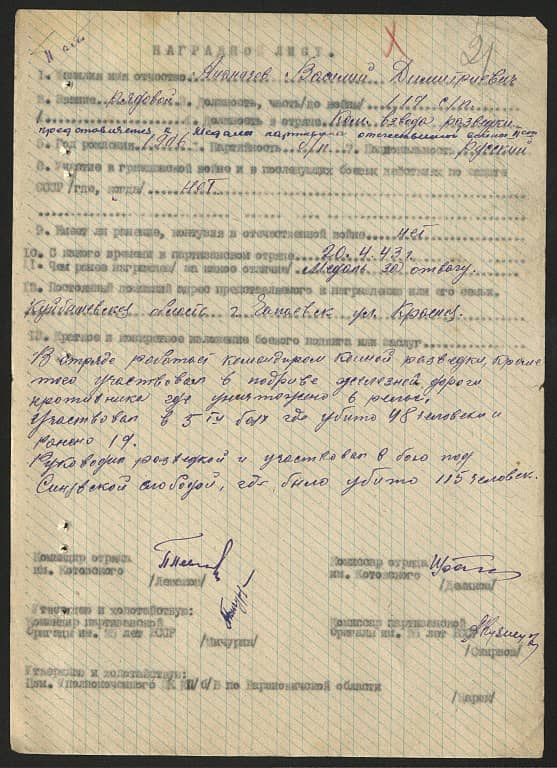 21
НАГРАДНОЙ ЛИСТ.
1. Фамилия имя отчество Василий Димитриевич
2. Звание рядовой 3. Должность, часть /до войны/ 417 с/п.
4. Должность в отряде. Ком. взвода разведки
представляется к медали партизана отечественной войны
5. Год рождения 1906 6. Партийность б/п 7. Национальность Русский
8. Участие в гражданской войне и в последующих боевых действиях по защите
СССР /где, когда/ нет
9. Имеет ли ранение, контузия в отечественной войне нет
10. С какого времени в партизанском отряде 20.4.43 г.
11. Чем ранее награжден /за какие отличия/ Медаль за отвагу.
12. Постоянный домашний адрес представляемого к награждению или его семьи.
область г. Чапаевск ул.
13. Краткое и конкретное изложение боевого подвига или заслуг
В отряде работает командиром конной разведки, кроме
того участвовал в подриве железной дороги
противника где уничтожено рельс,
Участвовал в 5 ти боях где убито 48 человек и
ранено 19.
Руководил разведкой и участвовал в бою под
слободой, где было убито 115 человек.
Командир отряда
им. Котовского
Комиссар отряда
им. Котовского
Утверждаю и ходатайствую:
Командир партизанской
бригады им. 25 лет БССР
/Мичурин/
Комиссар партизанской
бригады им. 25 лет БССР
/Смирнов/
Утверждаю и ходатайствую:
Зам. Уполномоченного ЦК КП/б/Б по Барановичской области
/Царюк/